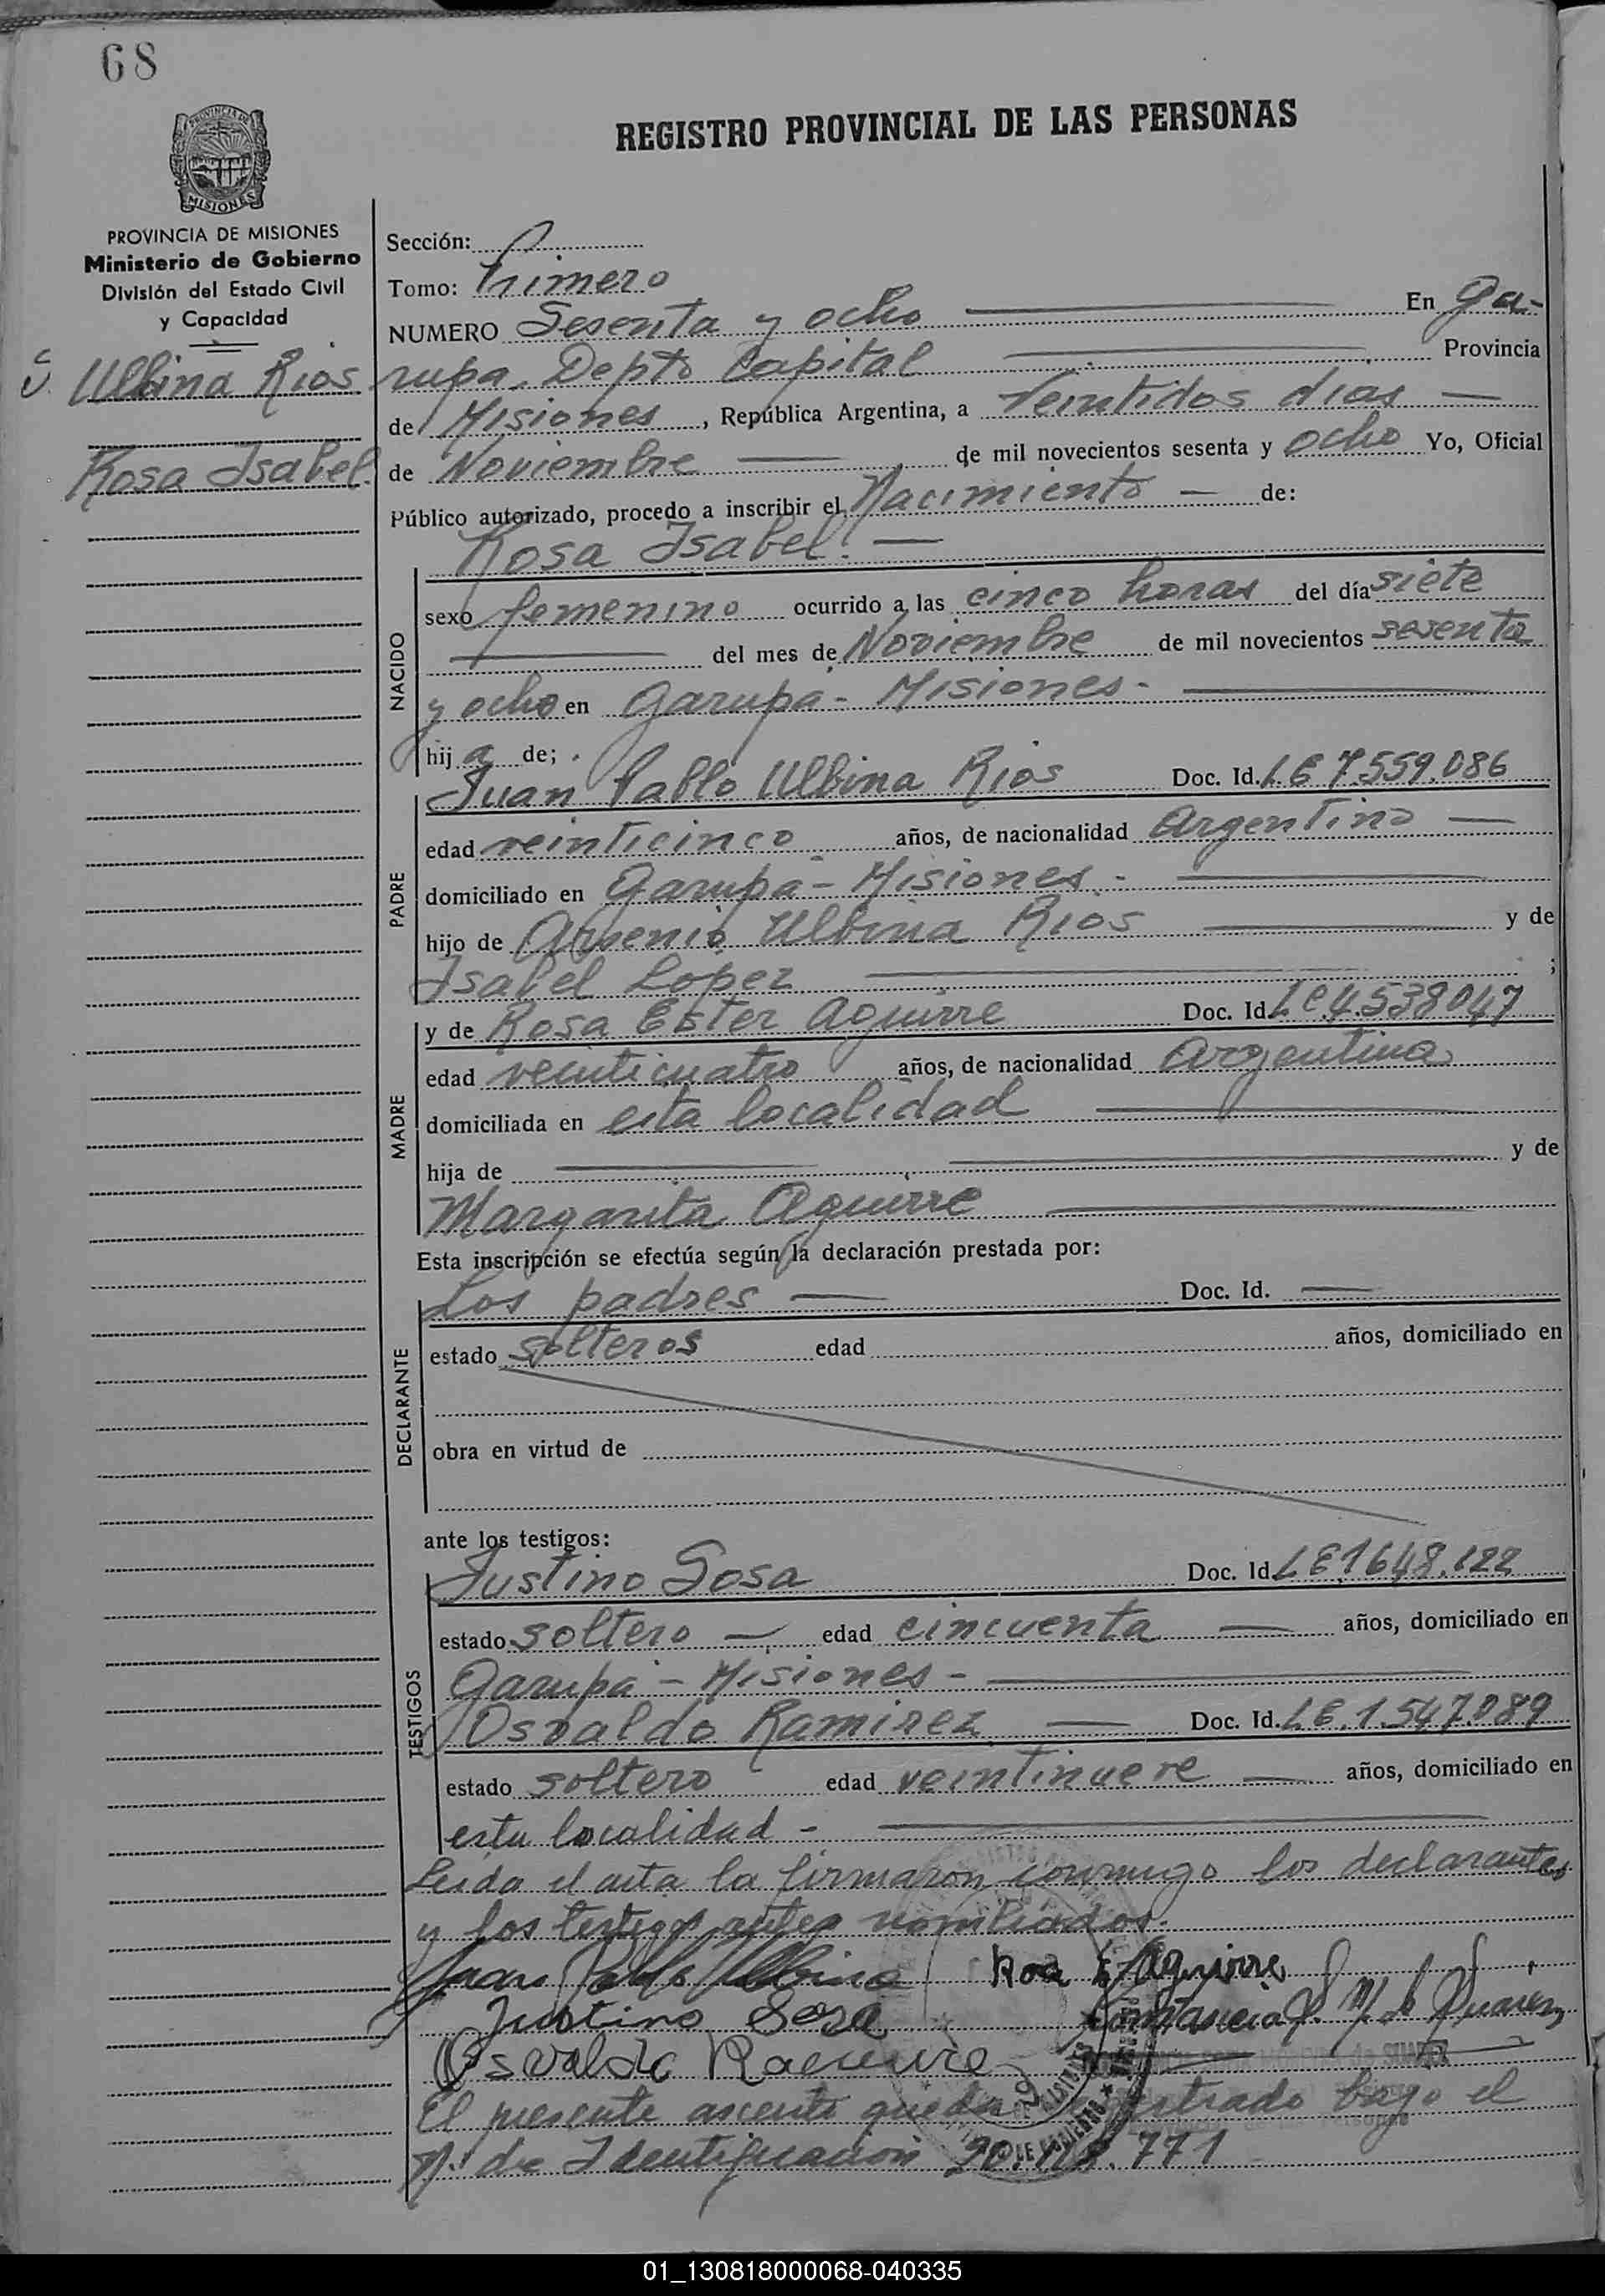 68
PROVINCIA DE
MISIONES
REGISTRO PROVINCIAL DE LAS PERSONAS
PROVINCIA DE MISIONES
Ministerio de Gobierno
División del Estado Civil
y Capacidad
Ulbina Rios
Rosa Isabel.
Sección:
Tomo: Primero
NUMERO Sesenta y ocho En Ga-
rupa. Depto Capital Provincia
de Misiones, República Argentina, a Veintidos dias
de Noviembre de mil novecientos sesenta y ocho Yo, Oficial
Público autorizado, procedo a inscribir el Nacimiento de:
Rosa Isabel.
NACIDO
sexo femenino ocurrido a las cinco horas del día siete
del mes de Noviembre de mil novecientos sesenta
y ocho en Garupá - Misiones -
hija de;
Juan Pablo Ulbina Rios Doc. Id. LE 7.559.086
PADRE
edad veinticinco años, de nacionalidad Argentino
domiciliado en Garupá - Misiones -
hijo de Arsenio Ulbina Rios y de
Isabel Lopez ;
y de Rosa Ester Aguirre Doc. Id. LC 4.538047
MADRE
edad veinticuatro años, de nacionalidad Argentina
domiciliada en esta localidad
hija de y de
Margarita Aguirre
Esta inscripción se efectúa según la declaración prestada por:
Los padres Doc. Id.
DECLARANTE
estado solteros edad años, domiciliado en
obra en virtud de
ante los testigos:
Justino Sosa Doc. Id. LE 1648.122
TESTIGOS
estado soltero edad cincuenta años, domiciliado en
Garupá - Misiones -
Osvaldo Ramirez Doc. Id. LE. 1.547.089
estado soltero edad veintinueve años, domiciliado en
esta localidad -
Leida el acta la firmaron conmigo los declarantes
y los testigos antes nombrados.
Juan Pablo Ulbina Rosa E Aguirre
Justino Sosa
Osvaldo
El presente asiento queda registrado bajo el
N. de Identificacion 771
01_130818000068-040335